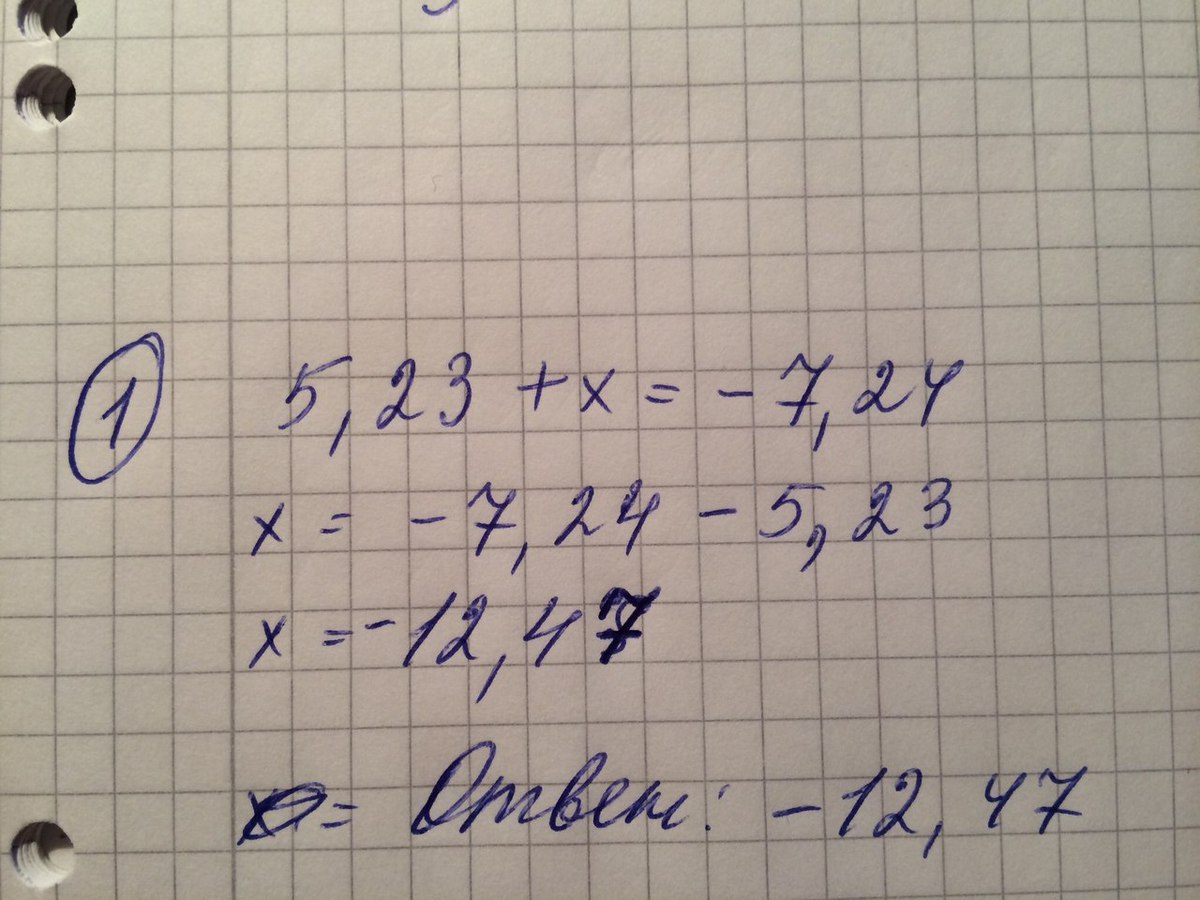 1 5,23 + x = - 7,24
x = - 7,24 - 5,23
x = - 12,47
x = Ответ: - 12,47